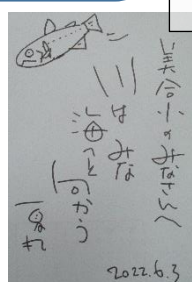 美合小のみなさんへ
川はみな
海へと
向かう
2022.6.3